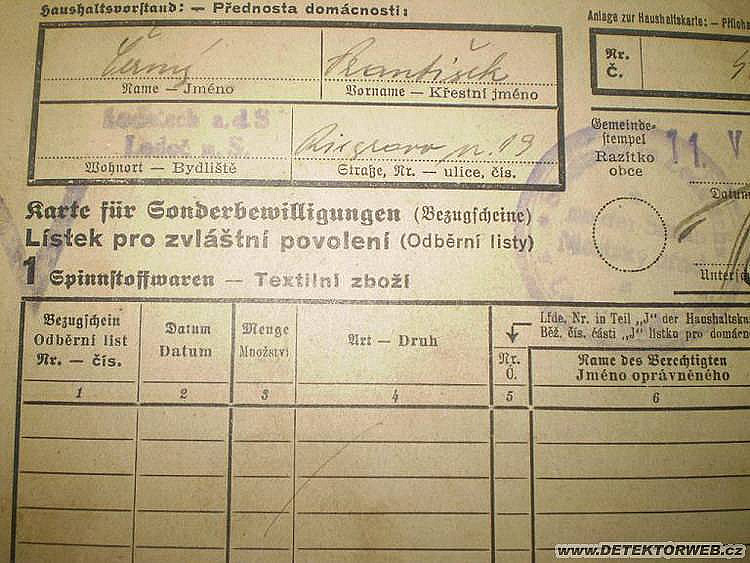 Haushaltsvorstand: — Přednosta domácnosti:
Anlage zur Haushaltskarte: — Příloha
Černý
František
Nr.
Č.
Name — Jméno
Vorname — Křestní jméno
Ledetsch a.d S
Ledeč a. S.
Riegrova n. 19
Gemeinde-
stempel
Razítko
obce
11. V
Wohnort — Bydliště
Straße, Nr. — ulice, čís.
Datum
Karte für Sonderbewilligungen (Bezugscheine)
Lístek pro zvláštní povolení (Odběrní listy)
1 Spinnstoffwaren — Textilní zboží
Unterschr
Bezugschein
Odběrní list
Nr. — čís.
Datum
Datum
Menge
Množství
Art — Druh
Lfde. Nr. in Teil „J" der Haushaltska
Běž. čís. části „J" lístku pro domácn
Nr.
Č.
Name des Berechtigten
Jméno oprávněného
1 2 3 4 5 6
www.DETEKTORWEB.cz